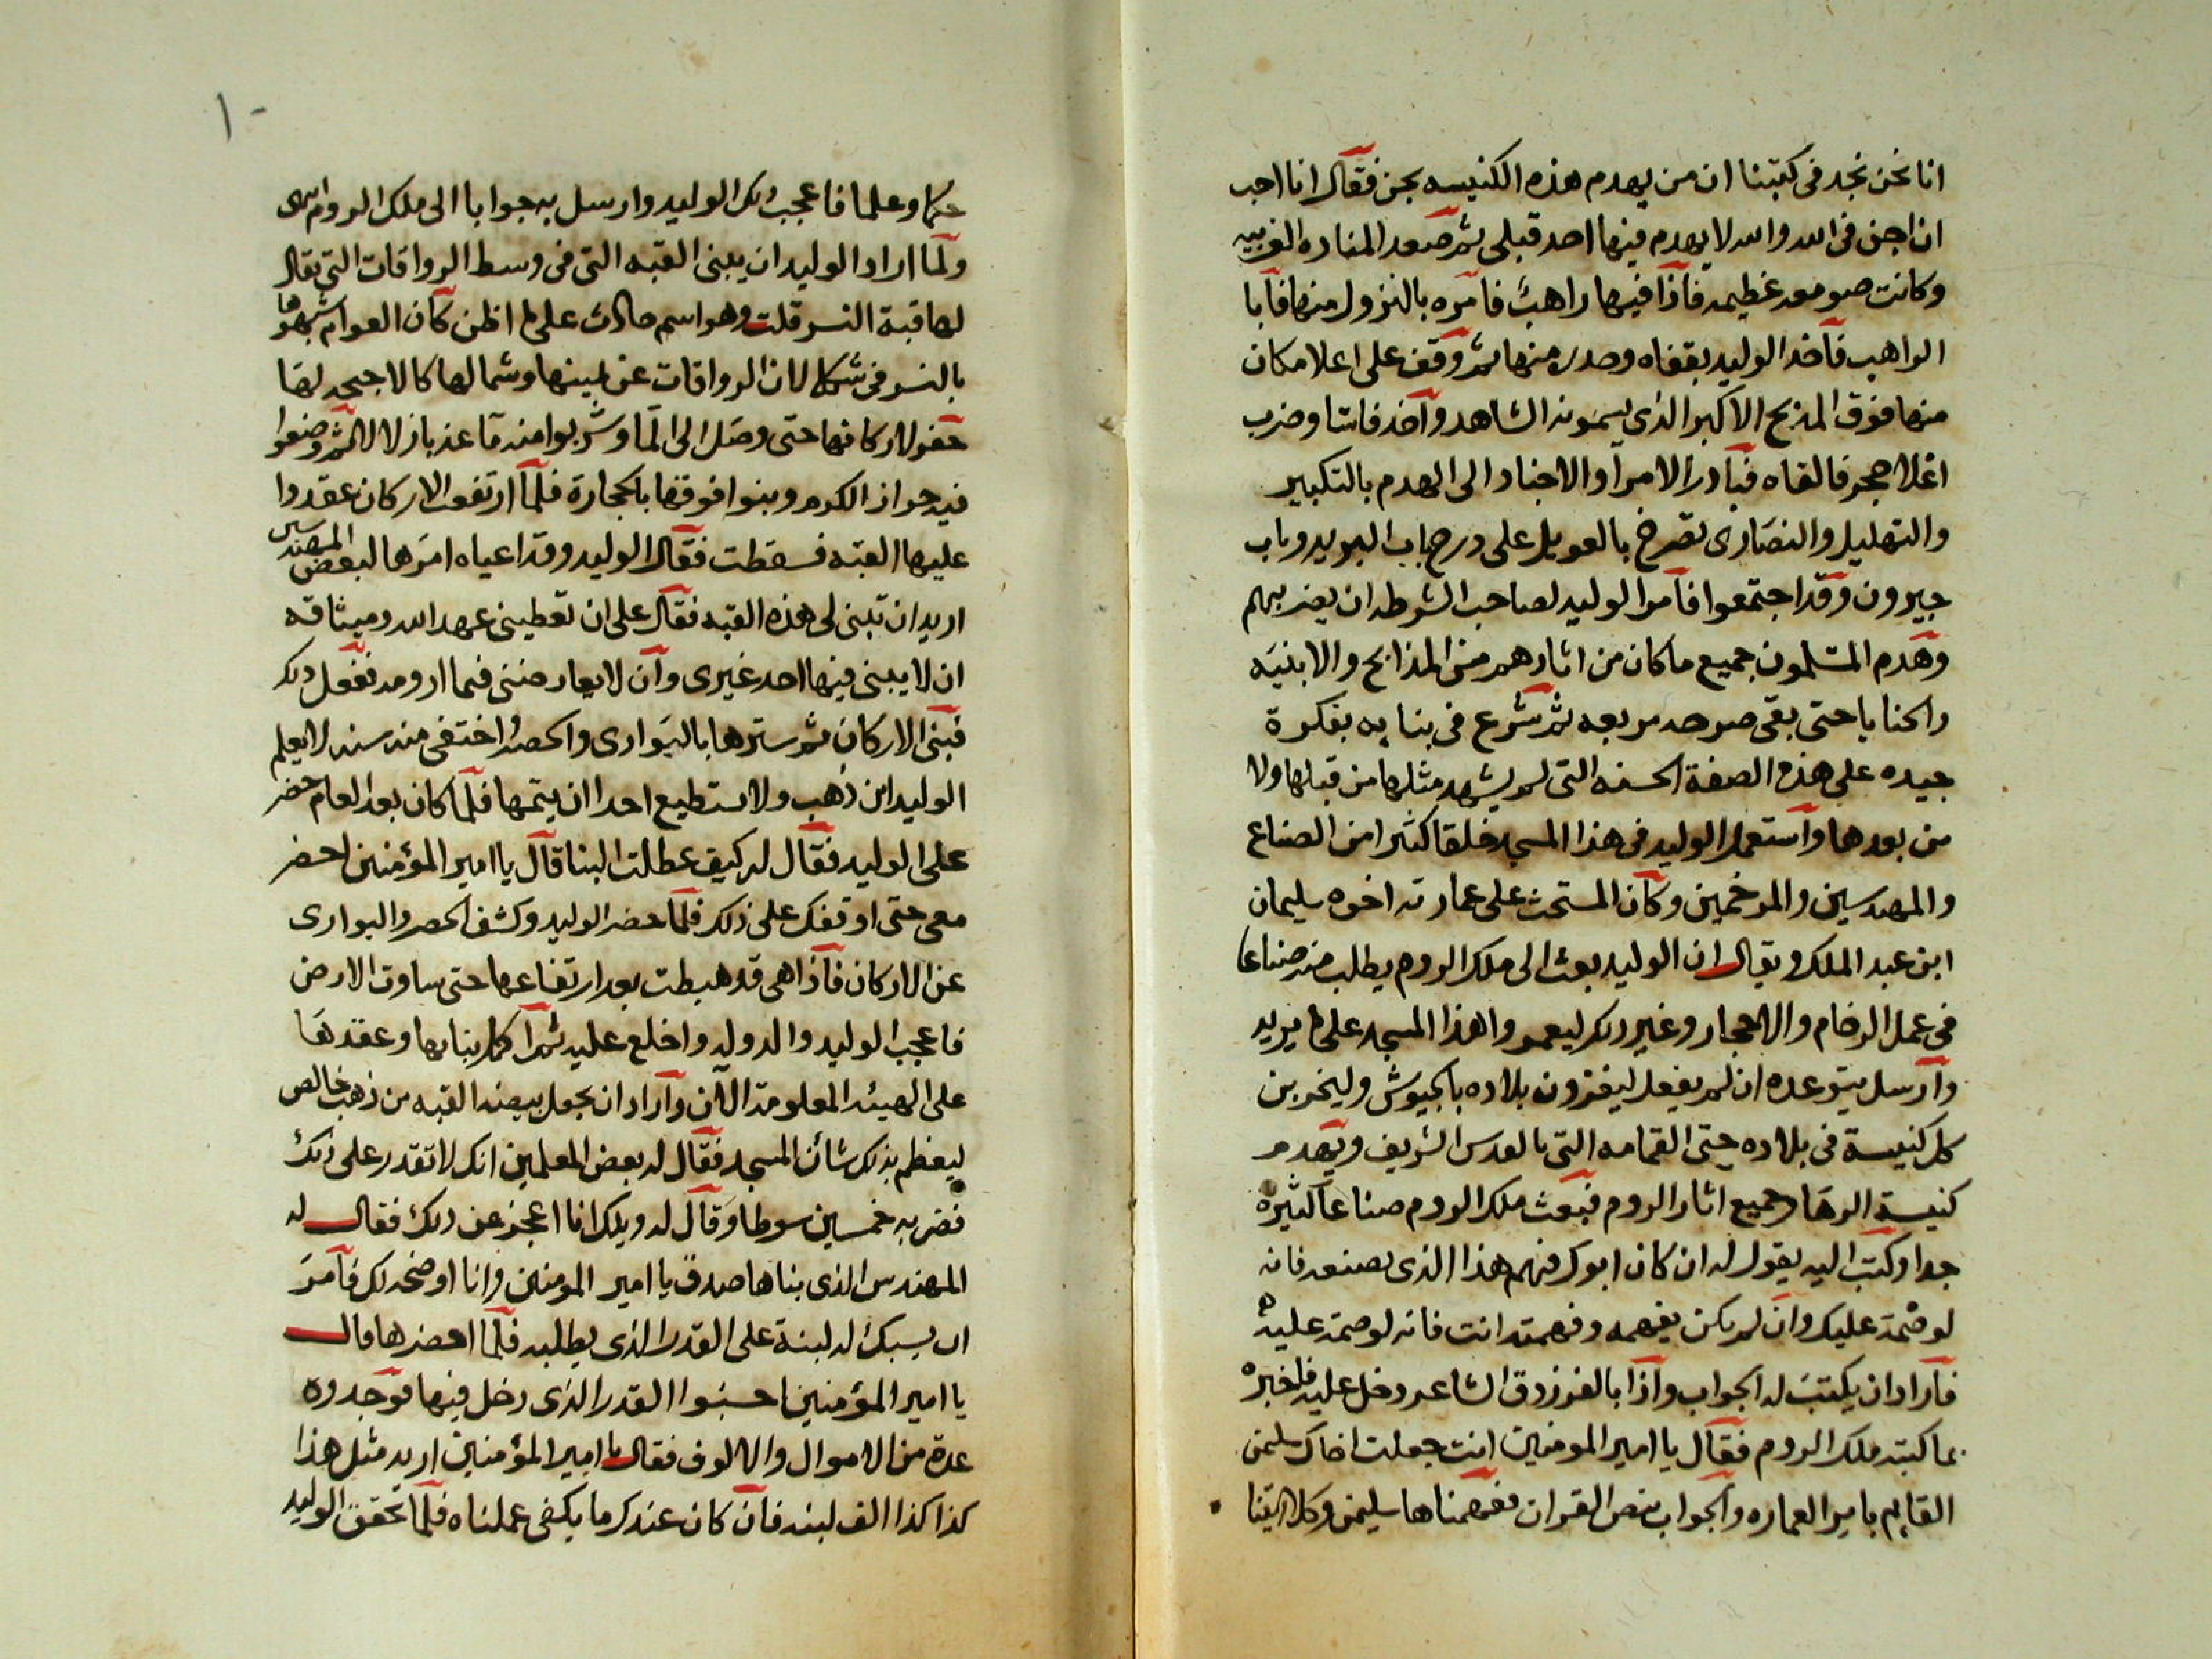 انا نحن نجد فى كتبنا ان من يهدم هذه الكنيسه يجن فقال انا احب
ان اجن فى الله والله لا يهدم فيها احد قبلى ثم صعد المناره الغربيه
وكانت صومعه عظيمه فاذا فيها راهب فامره بالنزول منها فابا
الراهب فاخذ الوليد بقفاه وحدره منها ثم وقف على اعلا مكان
منها فوق المذبح الاكبر الذى يسمونه الشاهد واخذ فاسا وضرب
اعلا حجر فالقاه فبادر الامرا والاجناد الى الهدم بالتكبير
والتهليل والنصارى تصرخ بالعويل على درج باب البريد وباب
جيرون وقد اجتمعوا فامر الوليد لصاحب الشرطه ان يضربهم
وهدم المسلمون جميع ما كان من اثارهم من المذابح والابنيه
والحنايا حتى بقى صرحه مربعه ثم شرع فى بنايه بفكرة
جيده على هذه الصفة الحسنه التى لم يشهد مثلها من قبلها ولا
من بعدها واستعمل الوليد فى هذا المسجد خلقا كثيرا من الصناع
والمهندسين والمرخمين وكان المستحث على عمارته اخوه سليمان
ابن عبد الملك ويقال ان الوليد بعث الى ملك الروم يطلب منه صناعا
فى عمل الرخام والاحجار وغير ذلك ليعمروا هذا المسجد على ما يريد
وارسل يتوعده ان لم يفعل ليغزون بلاده بالجيوش وليخربن
كل كنيسة فى بلاده حتى القمامه التى بالقدس الشريف ويهدم
كنيسة الرها وجميع اثار الروم فبعث ملك الروم صناعا كثيره
جدا وكتب اليه يقول له ان كان ابوك فهم هذا الذى تصنعه فانه
لوصمة عليك وان لم يكن يفهمه وفهمته انت فانه لوصمة عليه
فاراد ان يكتب له الجواب واذا بالفرزدق الشاعر دخل عليه فاخبره
بما كتبه ملك الروم فقال يا امير المومنين انت جعلت اخاك سليمن
القايم بامر العماره والجواب بنص القران ففهمناها سليمن وكلا اتينا
حكما وعلما فاعجب ذلك الوليد وارسل به جوابا الى ملك الروم انتهى
ولما اراد الوليد ان يبنى القبه التى فى وسط الرواقات التى يقال
لها قبة النسر قلت وهو اسم حادث على ما اظن كان العوام شبهوها
بالنسر فى شكله لان الرواقات عن يمينها وشمالها كالاجنحه لها
حفر لاركانها حتى وصل الى الما وشربوا منه ما عذبا زلالا ثم وضعوا
فيه جرار الكرم وبنوا فوقها بالحجارة فلما ارتفعت الاركان عقدوا
عليها القبه فسقطت فقال الوليد وقد اعياه امرها لبعض المهندسين
اريد ان تبنى لى هذه القبه فقال على ان تعطينى عهد الله وميثاقه
ان لا يبنى فيها احد غيرى وان لا يعارضنى فيما ارومه ففعل ذلك
فبنى الاركان ثم سترها بالبوارى والحصر واختفى منه سنه لا يعلم
الوليد اين ذهب ولا يستطيع احدا ان يتمها فلما كان بعد العام حضر
على الوليد فقال له كيف عطلت البنا قال يا امير المؤمنين احضر
معى حتى اوقفك على ذلك فلما حضر الوليد وكشف الحصر والبوارى
عن الاركان فاذا هى قد هبطت بعد ارتفاعها حتى ساوت الارض
فاعجب الوليد والدوله واخلع عليه ثم اكمل بناها وعقدها
على الهيئه المعلومة الان واراد ان يجعل بيضة القبه من ذهب خالص
ليعظم بذلك شان المسجد فقال له بعض المعلمين انك لا تقدر على ذلك
فضربه خمسين سوطا وقال له ويلك انا اعجز عن ذلك فقال له
المهندس الذى بناها صدق يا امير المومنين وانا اوضحه لك فامر
ان يسبك له لبنة على القدر الذى يطلبه فلما احضرها قال
يا امير المؤمنين احسبوا القدر الذى دخل فيها فوجدوه
عدة من الاموال والالوف فقال يا امير المؤمنين اريد مثل هذا
كذا كذا الف لبنه فان كان عندكم ما يكفى عملناه فلما تحقق الوليد